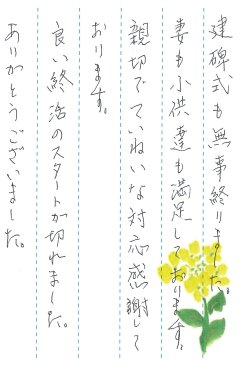 建碑式も無事終りました。
妻も小供達も満足しております。
親切でていねいな対応感謝して
おります。
良い終活のスタートが切れました。
ありがとうございました。